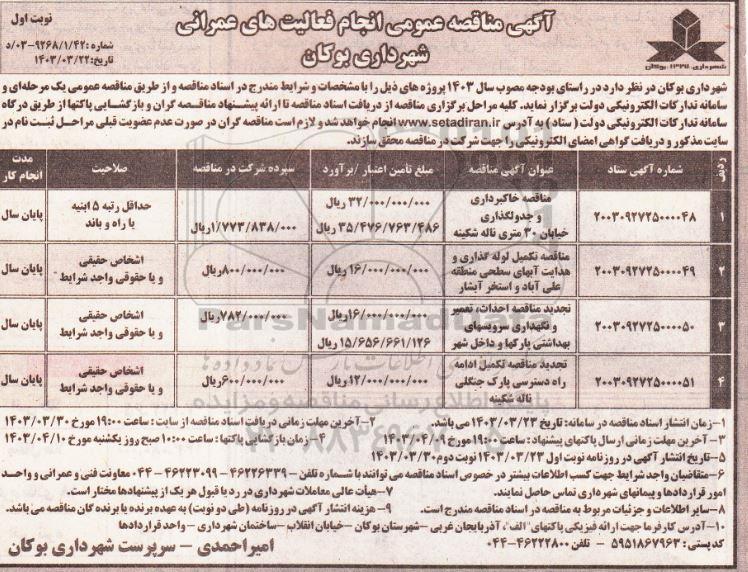 آگهی مناقصه عمومی انجام فعالیت های عمرانی
شهرداری بوکان
نوبت اول
شماره :۰۳-۹۲۶۸/۱/۴۲/د
تاریخ:۱۴۰۳/۰۳/۲۲
شهرداری ۱۳۲۷ بوکان
شهرداری بوکان در نظر دارد در راستای بودجه مصوب سال ۱۴۰۳ پروژه های ذیل را با مشخصات و شرایط مندرج در اسناد مناقصه و از طریق مناقصه عمومی یک مرحله‌ای و
سامانه تدارکات الکترونیکی دولت برگزار نماید. کلیه مراحل برگزاری مناقصه از دریافت اسناد مناقصه تا ارائه پیشنهاد مناقصه گران و بازگشایی پاکتها از طریق درگاه
سامانه تدارکات الکترونیکی دولت ( ستاد ) به آدرس www.setadiran.ir انجام خواهد شد و لازم است مناقصه گران در صورت عدم عضویت قبلی مراحل ثبت نام در
سایت مذکور و دریافت گواهی امضای الکترونیکی را جهت شرکت در مناقصه محقق سازند.
ردیف شماره آگهی ستاد عنوان آگهی مناقصه مبلغ تأمین اعتبار /برآورد سپرده شرکت در مناقصه صلاحیت مدت انجام کار
۱ ۲۰۰۳۰۹۲۷۲۵۰۰۰۰۴۸ مناقصه خاکبرداری و جدولگذاری خیابان ۳۰ متری ناله شکینه ۳۲/۰۰۰/۰۰۰/۰۰۰ ریال ۳۵/۴۷۶/۷۶۳/۴۸۶ ریال ۱/۷۷۳/۸۳۸/۰۰۰ریال حداقل رتبه ۵ ابنیه یا راه و باند پایان سال
۲ ۲۰۰۳۰۹۲۷۲۵۰۰۰۰۴۹ مناقصه تکمیل لوله گذاری و هدایت آبهای سطحی منطقه علی آباد و استخر آبشار ۱۶/۰۰۰/۰۰۰/۰۰۰ ریال ۸۰۰/۰۰۰/۰۰۰ریال اشخاص حقیقی و یا حقوقی واجد شرایط پایان سال
۳ ۲۰۰۳۰۹۲۷۲۵۰۰۰۰۵۰ تجدید مناقصه احداث، تعمیر و نگهداری سرویسهای بهداشتی پارکها و داخل شهر ۱۶/۰۰۰/۰۰۰/۰۰۰ریال ۱۵/۶۵۶/۶۶۱/۱۲۶ ریال ۷۸۲/۰۰۰/۰۰۰ریال اشخاص حقیقی و یا حقوقی واجد شرایط پایان سال
۴ ۲۰۰۳۰۹۲۷۲۵۰۰۰۰۵۱ تجدید مناقصه تکمیل ادامه راه دسترسی پارک جنگلی ناله شکینه ۱۲/۰۰۰/۰۰۰/۰۰۰ریال ۶۰۰/۰۰۰/۰۰۰ریال اشخاص حقیقی و یا حقوقی واجد شرایط پایان سال
۱-زمان انتشار اسناد مناقصه در سامانه: تاریخ ۱۴۰۳/۰۳/۲۳ می باشد. ۲-آخرین مهلت زمانی دریافت اسناد مناقصه از سایت : ساعت ۱۹:۰۰ مورخ ۱۴۰۳/۰۳/۳۰
۳-آخرین مهلت زمانی ارسال پاکتهای پیشنهاد : ساعت ۱۹:۰۰ مورخ ۱۴۰۳/۰۴/۰۹ ۴-زمان بازگشایی پاکتها : ساعت ۱۰:۰۰ صبح روز یکشنبه مورخ ۱۴۰۳/۰۴/۱۰
۵-تاریخ انتشار آگهی در روزنامه نوبت اول ۱۴۰۳/۰۳/۲۳ نوبت دوم ۱۴۰۳/۰۳/۳۰
۶-متقاضیان واجد شرایط جهت کسب اطلاعات بیشتر در خصوص اسناد مناقصه می توانند با شماره تلفن ۴۶۲۲۶۳۳۹ - ۴۶۲۲۳۰۹۹-۰۴۴ معاونت فنی و عمرانی و واحد
امور قراردادها و پیمانهای شهرداری تماس حاصل نمایند. ۷-هیأت عالی معاملات شهرداری در رد یا قبول هر یک از پیشنهادها مختار است.
۸-سایر اطلاعات و جزئیات مربوط به مناقصه در اسناد مناقصه مندرج است. ۹-هزینه انتشار آگهی در روزنامه (طی دو نوبت) به عهده برنده یا برنده گان مناقصه می باشد.
۱۰-آدرس کارفرما جهت ارائه فیزیکی پاکتهای "الف"، آذربایجان غربی -شهرستان بوکان -خیابان انقلاب -ساختمان شهرداری - واحد قراردادها
کد پستی : ۵۹۵۱۸۶۷۹۶۳ - تلفن ۴۶۲۲۲۸۰۰-۰۴۴
امیراحمدی - سرپرست شهرداری بوکان
ParsNamadData
پایگاه اطلاع رسانی مناقصه و مزایده